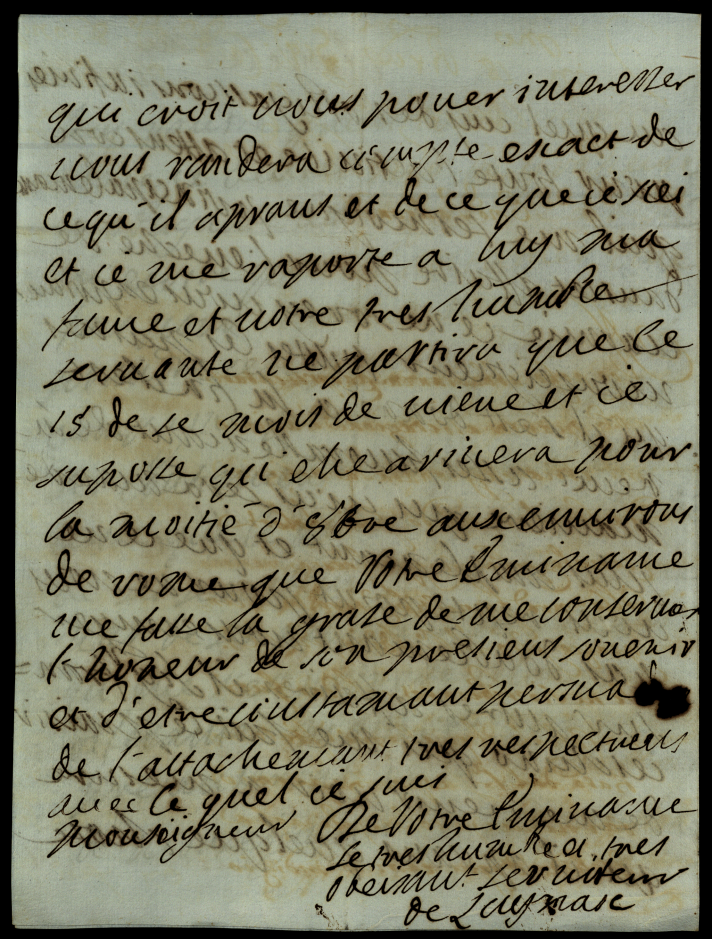 qui croit vous pouer interesser
vous randera compte exact de
ce qu'il apraus et de ce que ie scei
et ie me raporte a luy ma
fame et votre tres humble
servante ne partira que le
15 de se mois de viene et ie
suposse qu'elle arivera pour
la moitié d' 8bre aux environs
de rome que Votre Eminanse
me fasse la grase de me conserver
l'honeur de son presieus souvenir
et d'etre constamant persuadé
de l'attachemant tres respectueus
avec le quel ie suis
monseigneur De Votre Eminanse
le tres humble et tres
obeisant serviteur
de